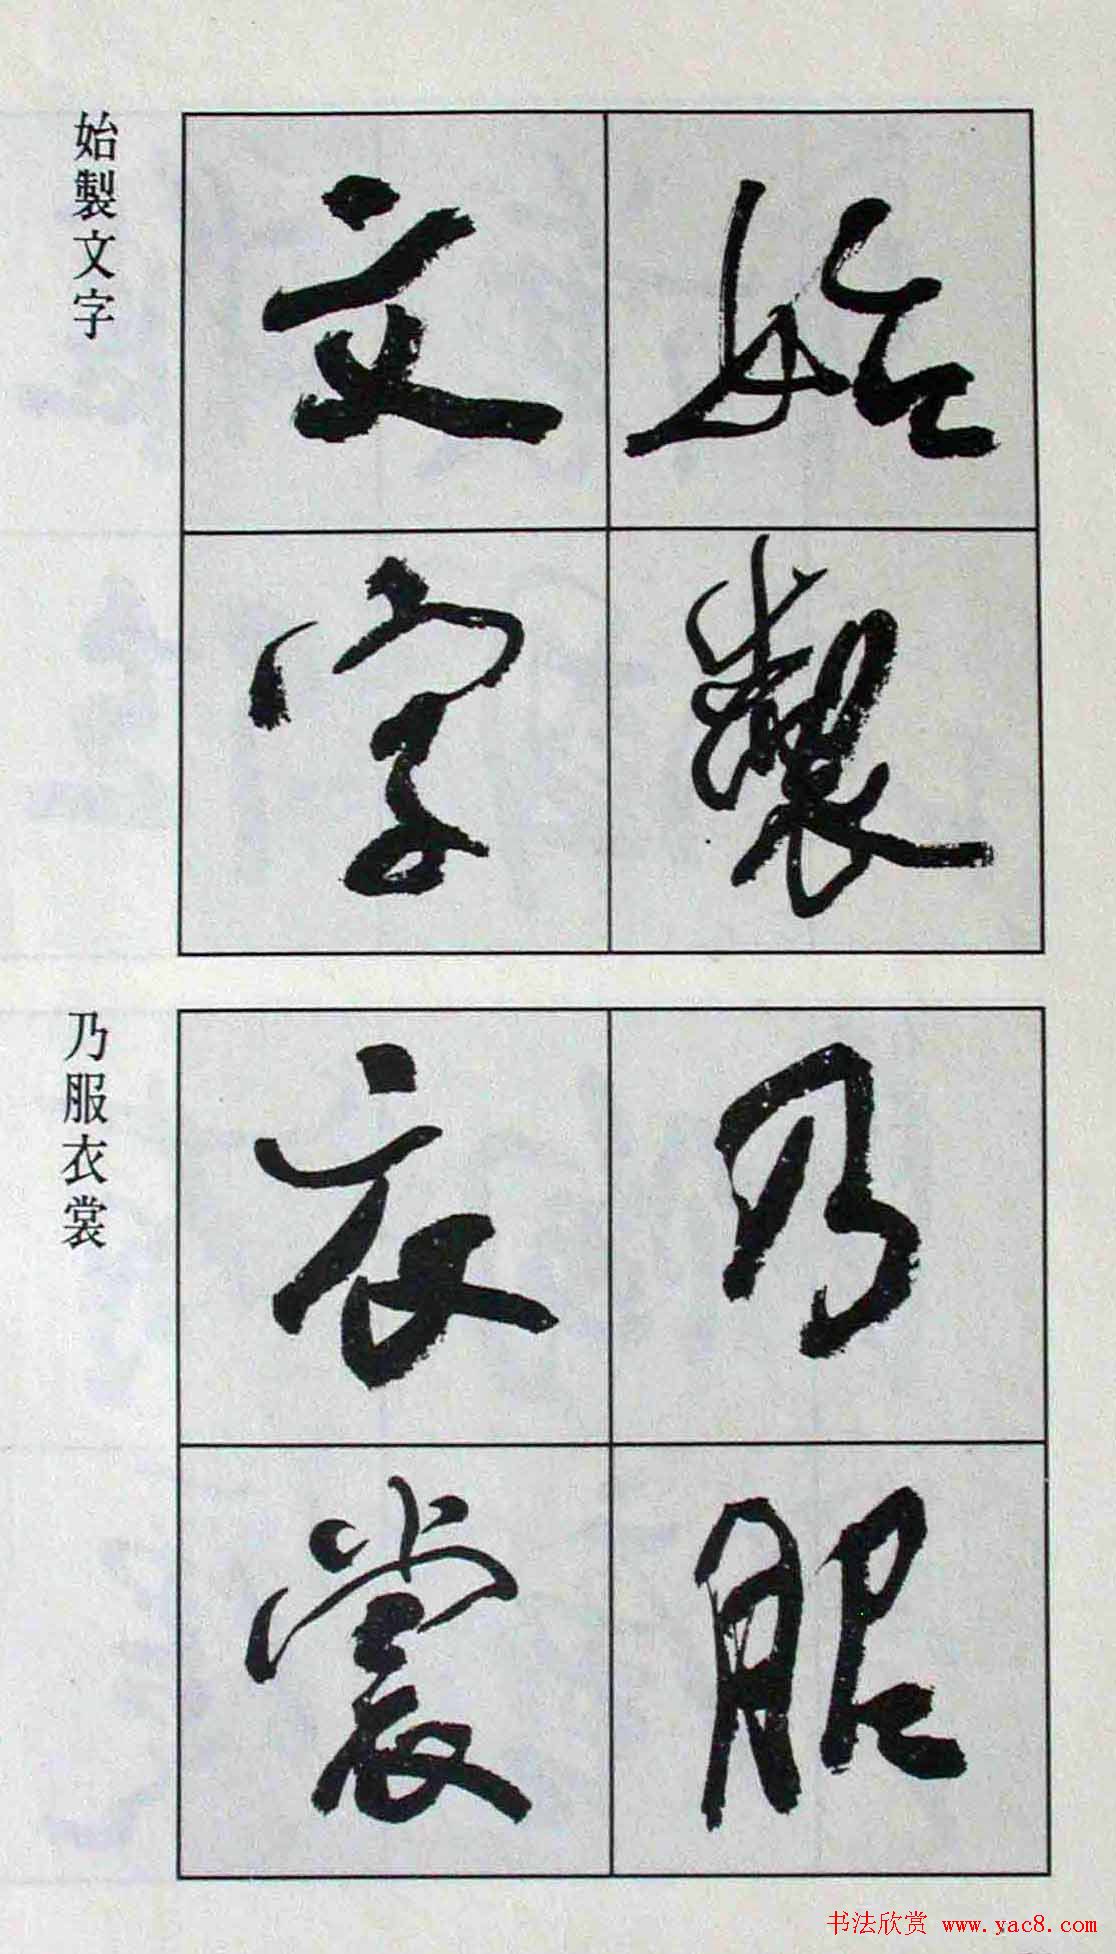 始製
文字
始製文字
乃服
衣裳
乃服衣裳
书法欣赏 www.yac8.com